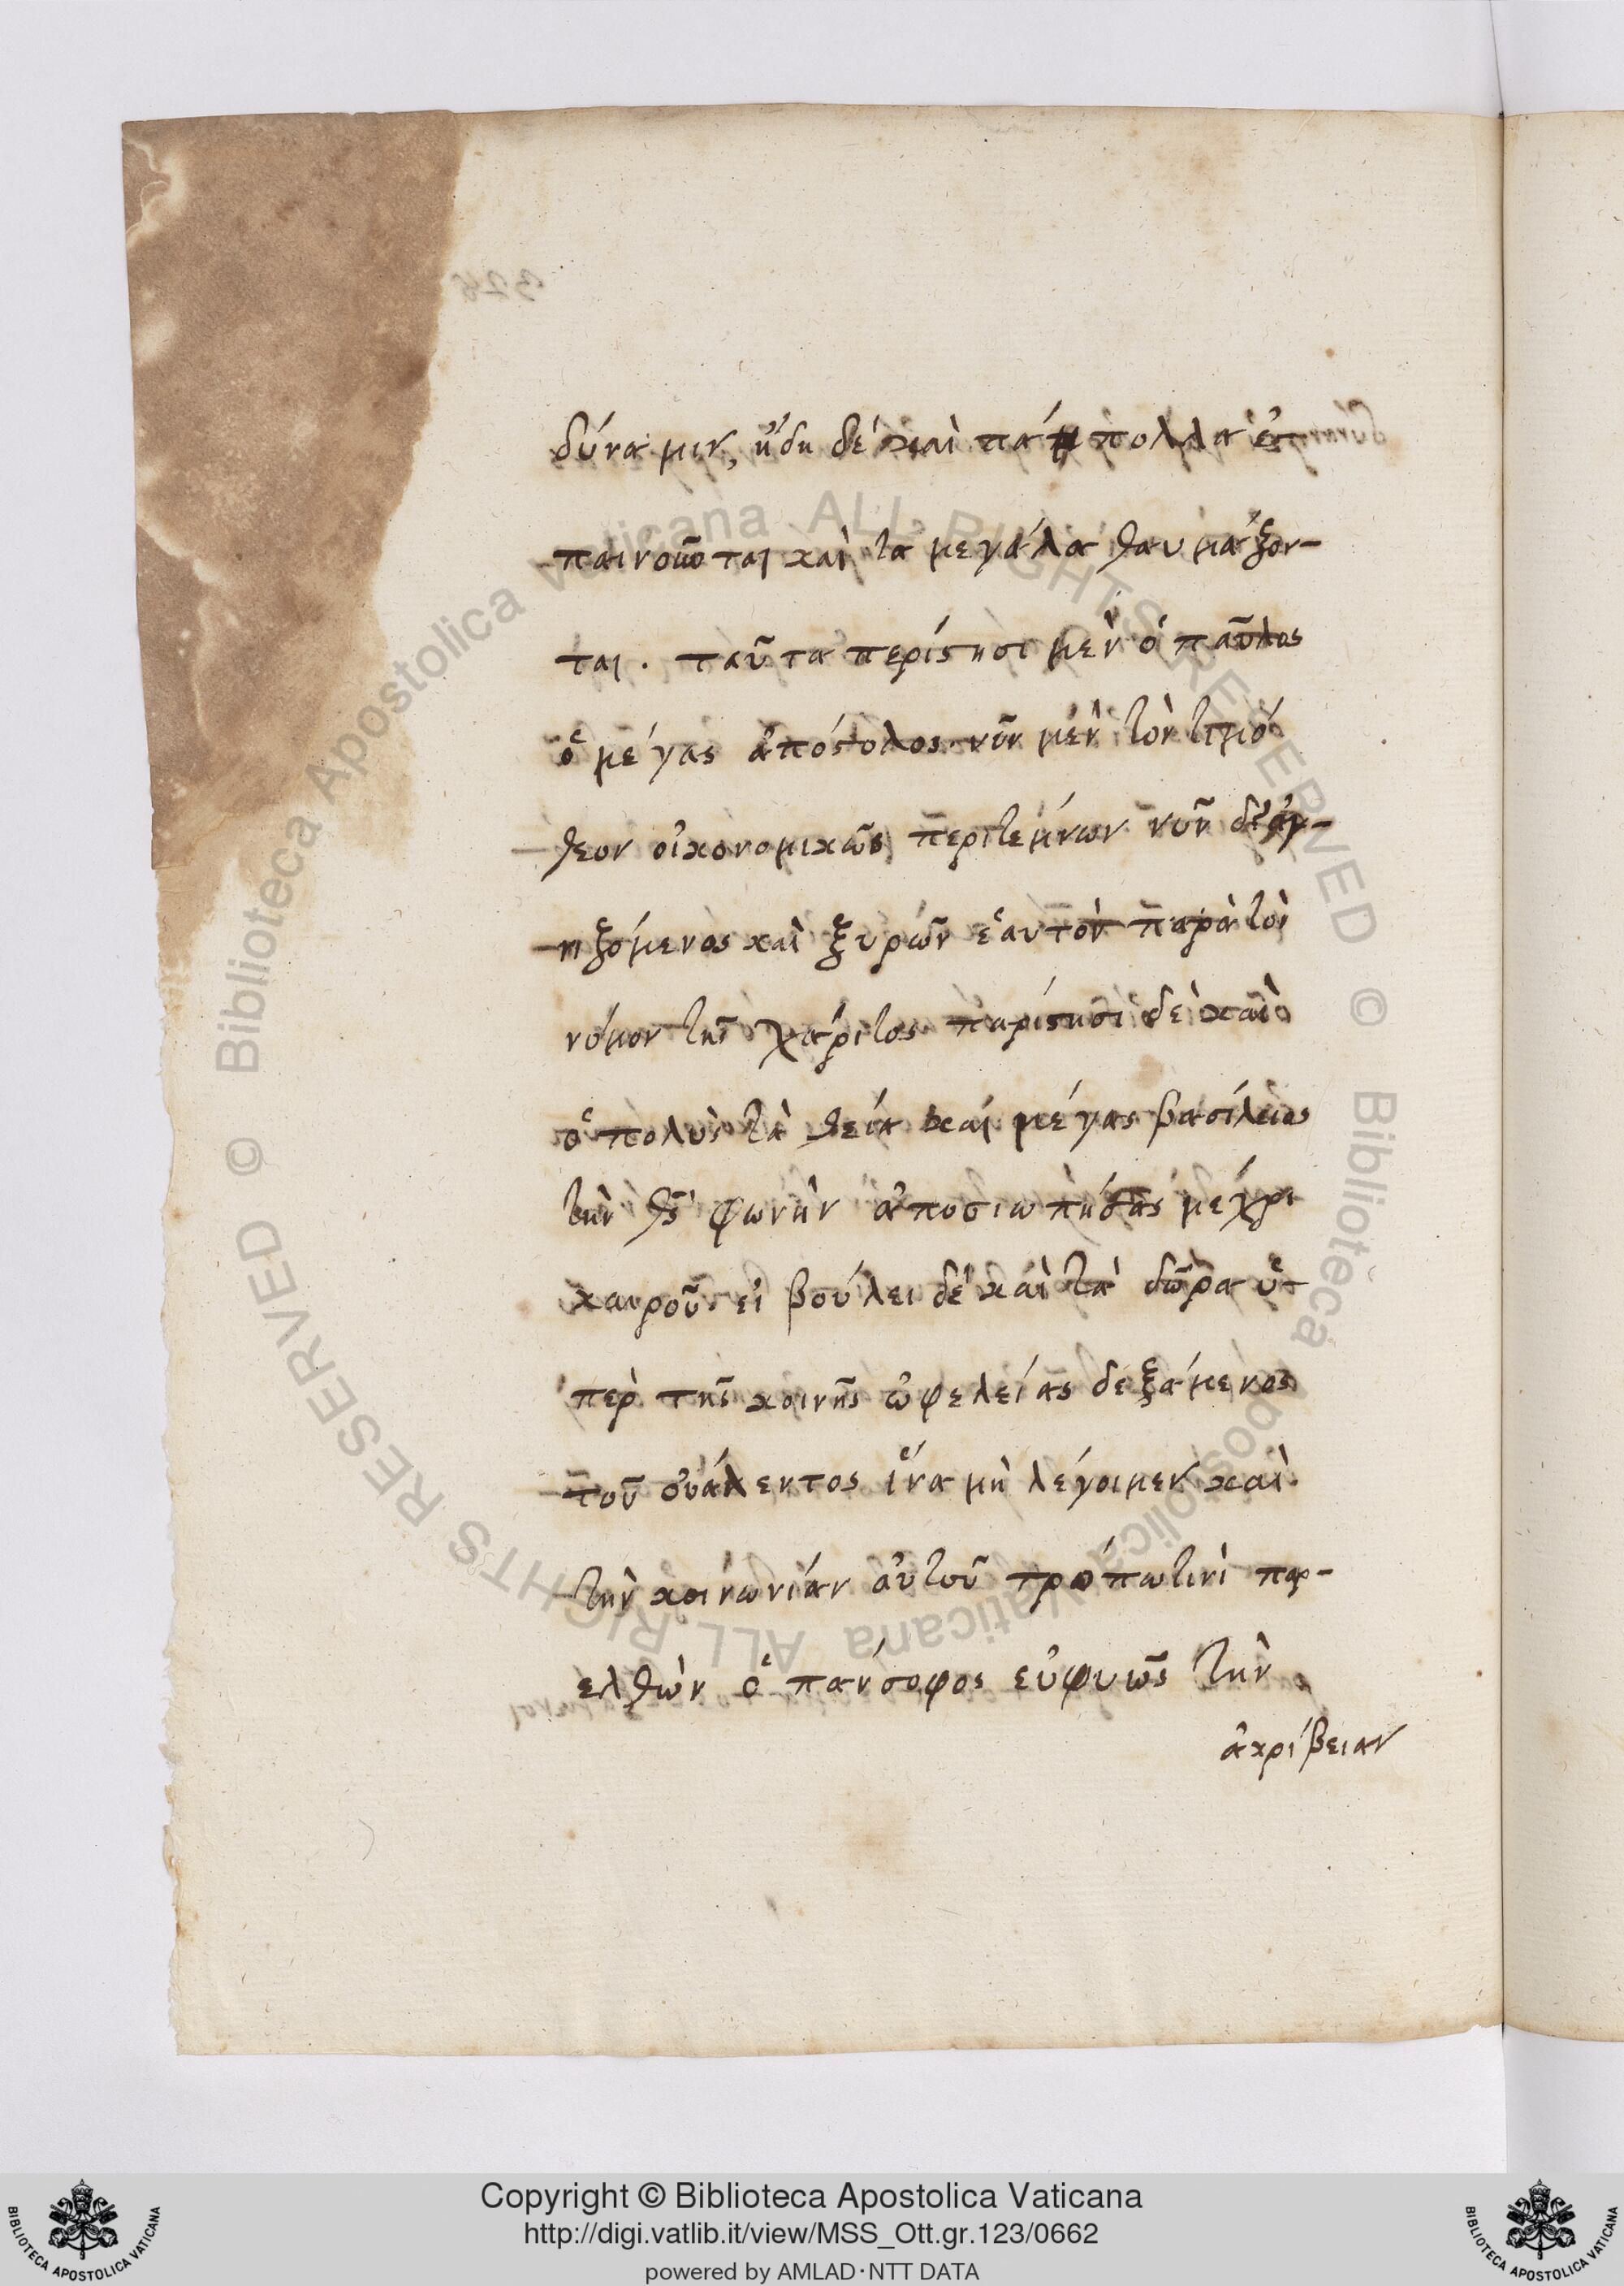 δύναμιν, ἤδη δὲ καὶ πάμπολλα ἐ-
παινοῦνται καὶ τὰ μεγάλα θαυμάζον-
ται. ταῦτα περίστησι μὲν ὁ παῦλος
ὁ μέγας ἀπόστολος νῦν μὲν τὸν τιμό
θεον οἰκονομικῶς περιτέμνων νῦν δὲ ἁγ-
νιζόμενος καὶ ξυρῶν ἑαυτὸν παρὰ τὸν
νόμον τῆς χάριτος παρίστησι δὲ καὶ
ὁ πολὺς τὰ θεῖα καὶ μέγας βασίλειος
τὴν θς φωνὴν ἀποσιωπήσας μέχρι
καιροῦ εἰ βούλει δὲ καὶ τὰ δῶρα ὑ-
περ τῆς κοινῆς ὠφελείας δεξάμενος
τοῦ οὐάλεντος ἵνα μὴ λέγοιμεν καὶ
τὴν κοινωνίαν αὐτοῦ τρόπω τινὶ παρ-
ελθὼν ὁ πάνσοφος εὐφυῶς τὴν
ἀκρίβειαν
Copyright © Biblioteca Apostolica Vaticana
http://digi.vatlib.it/view/MSS_Ott.gr.123/0662
powered by AMLAD·NTT DATA
BIBLIOTECA APOSTOLICA VATICANA
BIBLIOTECA APOSTOLICA VATICANA
© Biblioteca Apostolica Vaticana ALL RIGHTS RESERVED
© Biblioteca Apostolica Vaticana ALL RIGHTS RESERVED